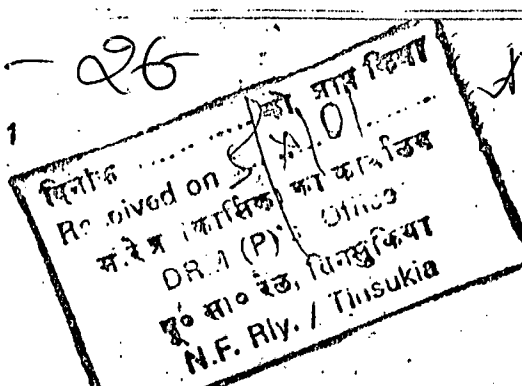 - 26
1
दिनांक ............ को, प्राप्त किया
Received on
का कार्यालय
DRM (P)'s Office
पू० सी० रेल, तिनसुकिया
N.F. Rly. / Tinsukia